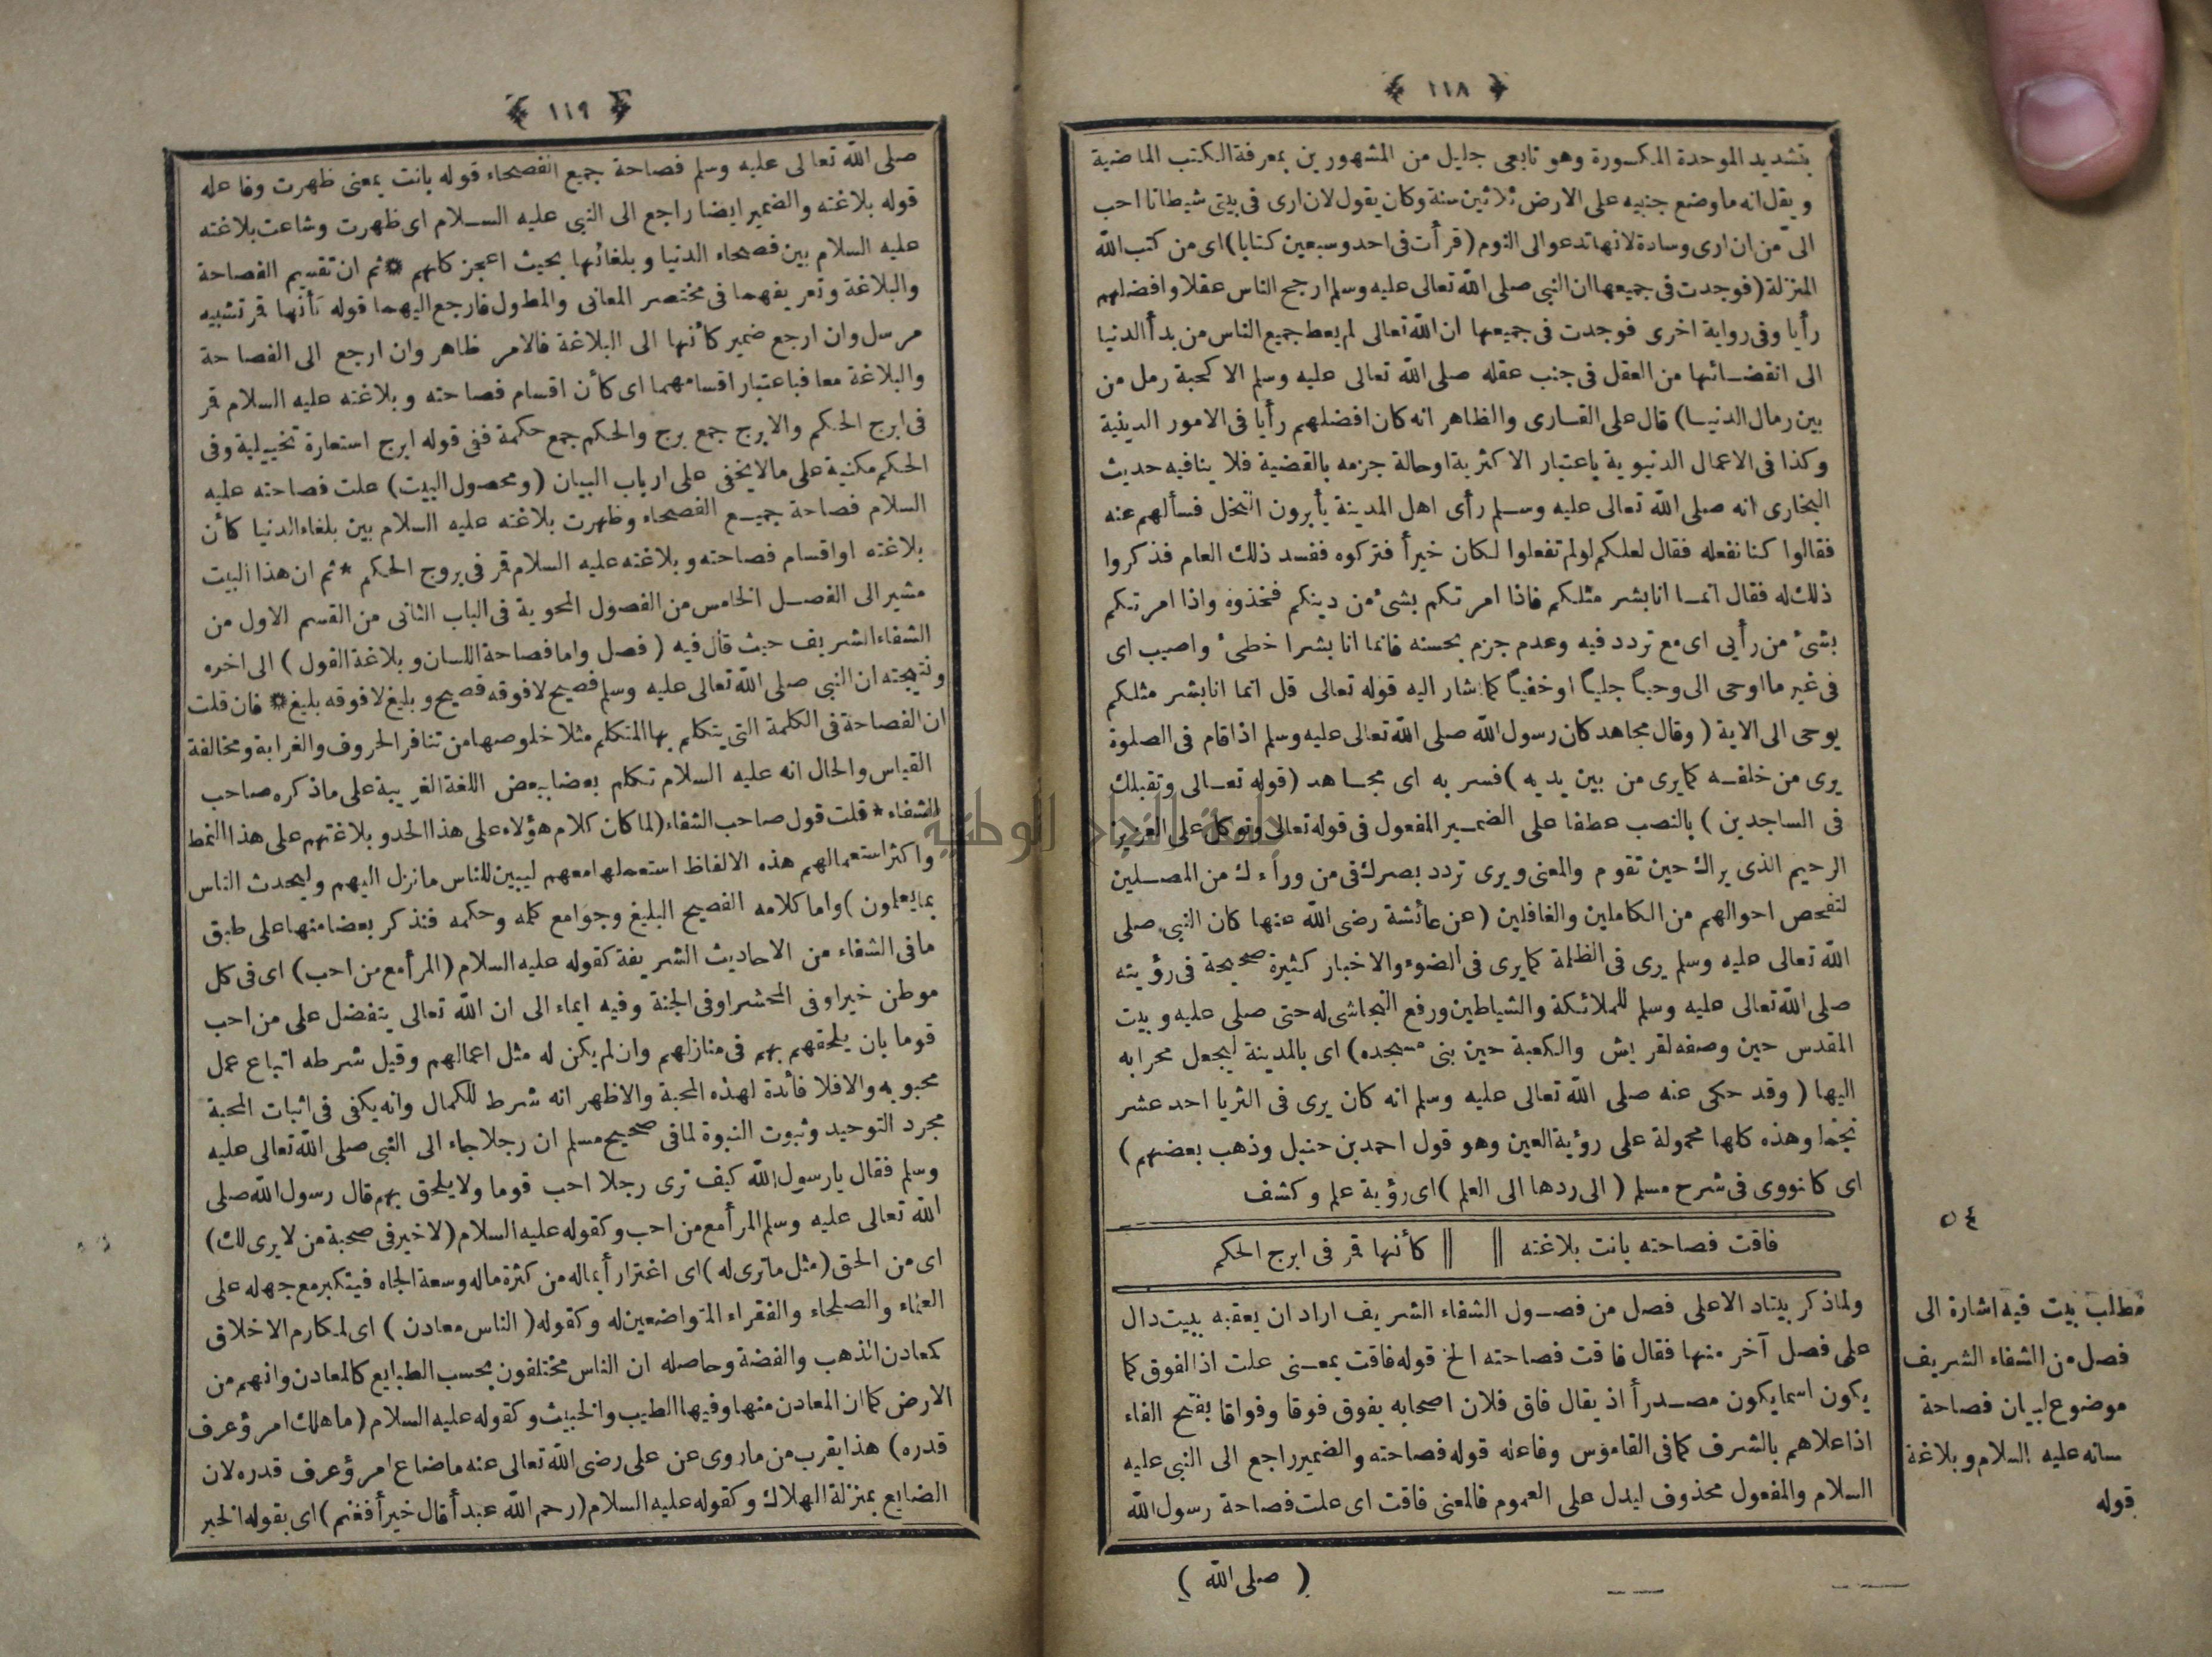 ﴿ ١١٨ ﴾
بتشديد الموحدة المكسورة وهو تابعى جليل من المشهورين بمعرفة الكتب الماضية
ويقل انه ما وضع جنبيه على الارض ثلاثين سنة وكان يقول لان ارى فى بيتى شيطانا احب
الىّ من ان ارى وسادة لانها تدعو الى النوم (قرأت فى احد وسبعين كتابا) اى من كتب الله
المنزلة (فوجدت فى جميعها ان النبى صلى الله تعالى عليه وسلم ارجح الناس عقلا وافضلهم
رأيا وفى رواية اخرى فوجدت فى جميعها ان الله تعالى لم يعط جميع الناس من بدأ الدنيا
الى انقضائها من العقل فى جنب عقله صلى الله تعالى عليه وسلم الا كحبة رمل من
بين رمال الدنيا) قال على القارى والظاهر انه كان افضلهم رأيا فى الامور الدينية
وكذا فى الاعمال الدنيوية باعتبار الاكثرية او حالة جزمه بالقضية فلا ينافيه حديث
البخارى انه صلى الله تعالى عليه وسلم رأى اهل المدينة يأبرون النخل فسألهم عنه
فقالوا كنا نفعله فقال لعلكم لو لم تفعلوا لكان خيرأ فتركوه ففسد ذلك العام فذكروا
ذلك له فقال انما انا بشر مثلكم فاذا امرتكم بشئ من دينكم فخذوه واذا امرتكم
بشئ من رأيى اى مع تردد فيه وعدم جزم بحسنه فانما انا بشر اخطئ واصيب اى
فى غير ما اوحى الى وحياً جلياً او خفياً كما شار اليه قوله تعالى قل انما انا بشر مثلكم
يوحى الى الاية (وقال مجاهد كان رسول الله صلى الله تعالى عليه وسلم اذا قام فى الصلوة
يرى من خلفه كما يرى من بين يديه) فسر به اى مجاهد (قوله تعالى وتقبلك
فى الساجدين) بالنصب عطفا على الضمير المفعول فى قوله تعالى وتوكل على العزيز
الرحيم الذى يراك حين تقوم والمعنى ويرى تردد بصرك فى من ورآءك من المصلين
لتفحص احوالهم من الكاملين والغافلين (عن عائشة رضى الله عنها كان النبى صلى
الله تعالى عليه وسلم يرى فى الظلمة كما يرى فى الضوء والاخبار كثيرة صحيحة فى رؤيته
صلى الله تعالى عليه وسلم للملائكة والشياطين ورفع النجاشى له حتى صلى عليه وبيت
المقدس حين وصفه لقريش والكعبة حين بنى مسجده) اى بالمدينة ليجعل محرابه
اليها (وقد حكى عنه صلى الله تعالى عليه وسلم انه كان يرى فى الثريا احد عشر
نجما وهذه كلها محمولة على رؤية العين وهو قول احمد بن حنبل وذهب بعضهم)
اى كا نووى فى شرح مسلم (الى ردها الى العلم) اى رؤية علم وكشف
٥٤
فاقت فصاحته بانت بلاغته || || كأنها قمر فى ابرج الحكم
ولما ذكر بيتاد الا على فصل من فصول الشفاء الشريف اراد ان يعقبه ببيت دال
على فصل آخر منها فقال فاقت فصاحته الخ قوله فاقت بمعنى علت اذ الفوق كما
يكون اسما يكون مصدرأ اذ يقال فاق فلان اصحابه يفوق فوقا وفواقا بفتح الفاء
اذا علاهم بالشرف كما فى القاموس وفاعله قوله فصاحته والضمير راجع الى النبى عليه
السلام والمفعول محذوف ليدل على العموم فالمعنى فاقت اى علت فصاحة رسول الله
مطلب بيت فيه اشارة الى
فصل من الشفاء الشريف
موضوع لبيان فصاحة
سانه عليه السلام وبلاغة
قوله
( صلى الله )
﴿ ١١٩ ﴾
صلى الله تعالى عليه وسلم فصاحة جميع الفصحاء قوله بانت بمعنى ظهرت وفاعله
قوله بلاغته والضمير ايضا راجع الى النبى عليه السلام اى ظهرت وشاعت بلاغته
عليه السلام بين فصحاء الدنيا وبلغائها بحيث اعجز كلهم * ثم ان تقسيم الفصاحة
والبلاغة وتعريفهما فى مختصر المعانى والمطول فارجع اليهما قوله كأنها قمر تشبيه
مرسل وان ارجع ضمير كأنها الى البلاغة فالامر ظاهر وان ارجع الى الفصاحة
والبلاغة معا فباعتبار اقسامهما اى كأن اقسام فصاحته وبلاغته عليه السلام قمر
فى ابرج الحكم والابرج جمع برج والحكم جمع حكمة ففى قوله ابرج استعارة تخييلية وفى
الحكم مكنية على ما لا يخفى على ارباب البيان (ومحصول البيت) علت فصاحته عليه
السلام فصاحة جميع الفصحاء وظهرت بلاغته عليه السلام بين بلغاء الدنيا كأن
بلاغته او اقسام فصاحته وبلاغته عليه السلام قمر فى بروج الحكم * ثم ان هذا البيت
مشير الى الفصل الخامس من الفصول المحوية فى الباب الثانى من القسم الاول من
الشفاء الشريف حيث قال فيه (فصل واما فصاحة اللسان وبلاغة القول) الى اخره
ونتيجته ان النبى صلى الله تعالى عليه وسلم فصيح لا فوقه فصيح وبليغ لا فوقه بليغ * فان قلت
ان الفصاحة فى الكلمة التى يتكلم بها المتكلم مثلا خلوصها من تنافر الحروف والغرابة ومخالفة
القياس والحال انه عليه السلام تكلم بعضا ببعض اللغة الغريبة على ما ذكره صاحب
الشفاء * قلت قول صاحب الشفاء (لما كان كلام هؤلاء على هذا الحد وبلاغتهم على هذا النمط
واكثر استعمالهم هذه الالفاظ استعملها معهم ليبين للناس ما نزل اليهم وليحدث الناس
بما يعلمون) واما كلامه الفصيح البليغ وجوامع كلمه وحكمه فنذكر بعضا منها على طبق
ما فى الشفاء من الاحاديث الشريفة كقوله عليه السلام (المرأ مع من احب) اى فى كل
موطن خير او فى المحشر او فى الجنة وفيه ايماء الى ان الله تعالى يتفضل على من احب
قوما بان يلحقهم بهم فى منازلهم وان لم يكن له مثل اعمالهم وقيل شرطه اتباع عمل
محبوبه والا فلا فائدة لهذه المحبة والاظهر انه شرط للكمال وانه يكفى فى اثبات المحبة
مجرد التوحيد وثبوت النبوة لما فى صحيح مسلم ان رجلا جاء الى النبى صلى الله تعالى عليه
وسلم فقال يارسول الله كيف ترى رجلا احب قوما ولا يلحق بهم قال رسول الله صلى
الله تعالى عليه وسلم المرأ مع من احب وكقوله عليه السلام (لا خير فى صحبة من لا يرى لك)
اى من الحق (مثل ما ترى له) اى اغترارأ بماله من كثرة ماله وسعة الجاه فيتكبر مع جهله على
العلماء والصلحاء والفقراء المتواضعين له وكقوله (الناس معادن) اى لمكارم الاخلاق
كمعادن الذهب والفضة وحاصله ان الناس مختلفون بحسب الطبايع كالمعادن وانهم من
الارض كما ان المعادن منها وفيها الطيب والخبيث وكقوله عليه السلام (ما هلك امرؤ عرف
قدره) هذا يقرب من ما روى عن على رضى الله تعالى عنه ما ضاع امرؤ عرف قدره لان
الضايع بمنزلة الهلاك وكقوله عليه السلام (رحم الله عبدأ قال خيرأ فغنم) اى بقوله الخير